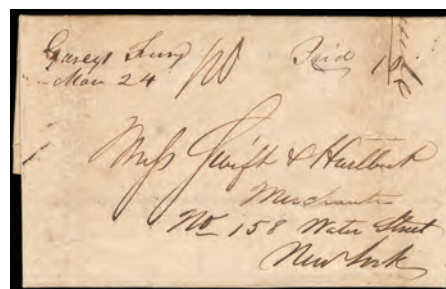 Grieys Ferry Paid 10
Mar 24
Mess Swift & Hurlbut
Merchants
No 158 Water Street
New York